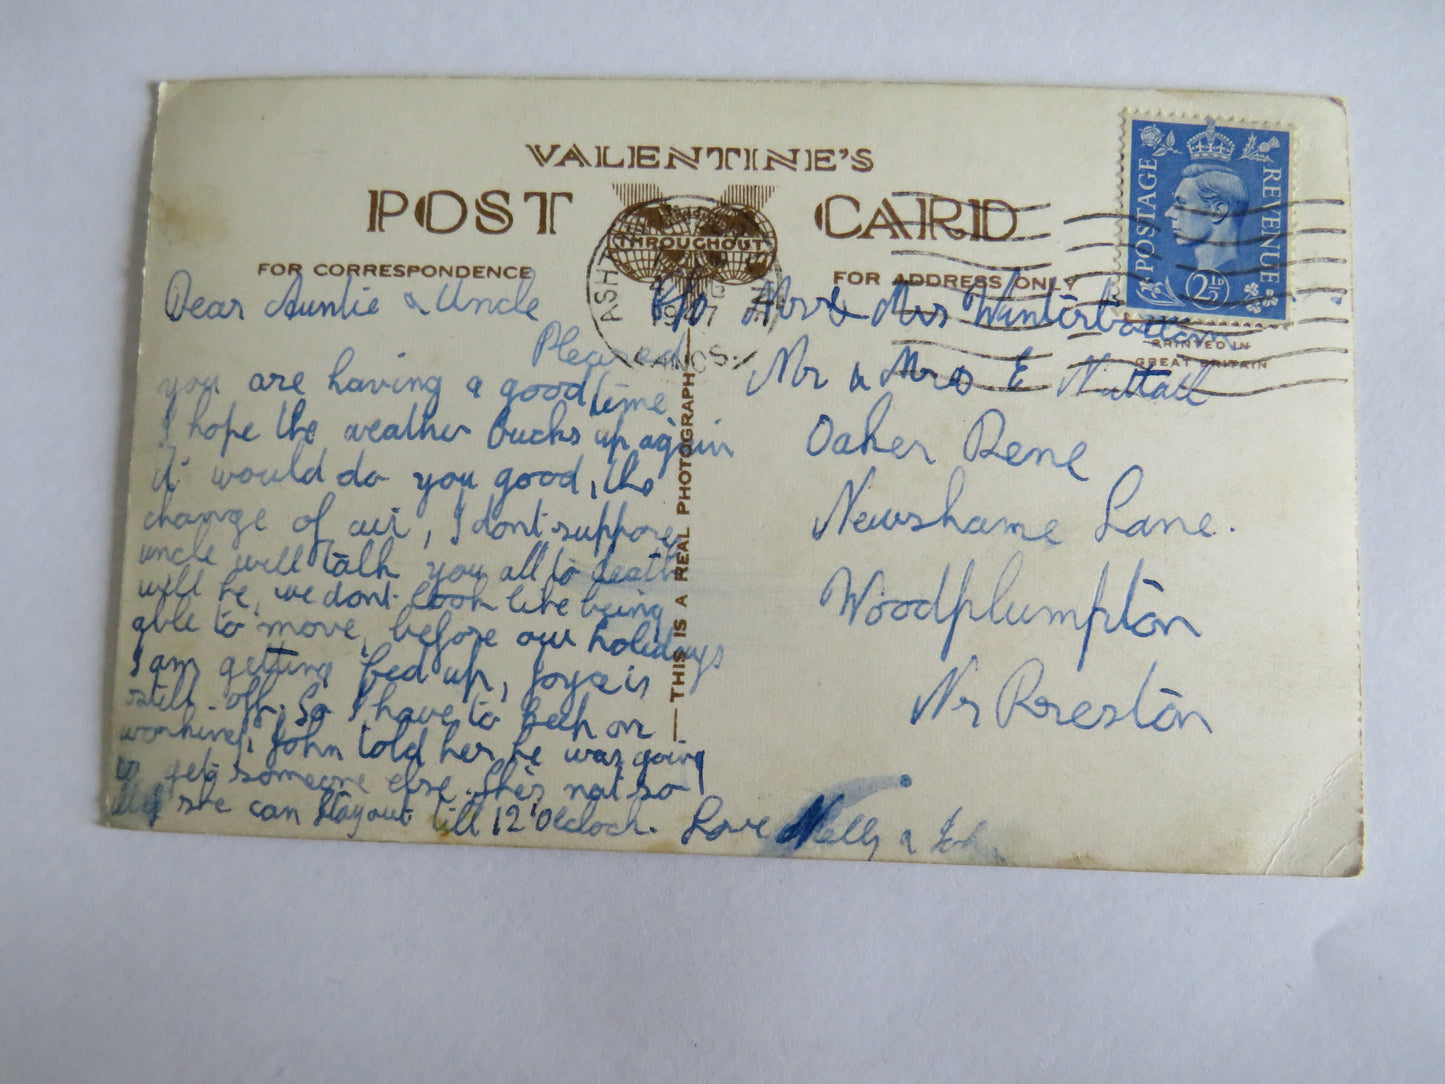 VALENTINE'S
POST CARD
THROUGHOUT
FOR CORRESPONDENCE
FOR ADDRESS ONLY
POSTAGE REVENUE
2½D
PRINTED IN
GREAT BRITAIN
ASHT
1947
LANCS.
THIS IS A REAL PHOTOGRAPH
Dear Auntie & Uncle
Pleased
you are having a good time
I hope the weather bucks up again
it would do you good, the
change of air, I dont suppose
uncle will talk you all to death
will he, we dont look like being
able to move, before our holidays
I am getting fed up, Joyce is
still off. So I have to be on
working, John told her he was going
to get someone else. She's not so
she can stay out till 12 Oclock. Love Nelly & John
c/o Mr & Mrs Winterbottom
Mr & Mrs E Nuttall
Oaker Dene
Newshame Lane.
Woodplumpton
Nr Preston